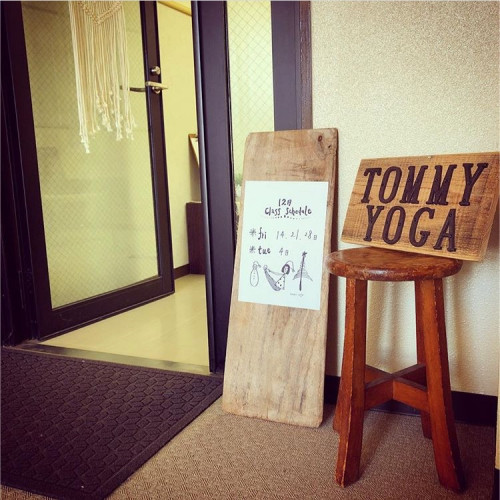 12月
Class Schedule
* fri 14. 21. 28日
* tue 4日
TOMMY
YOGA